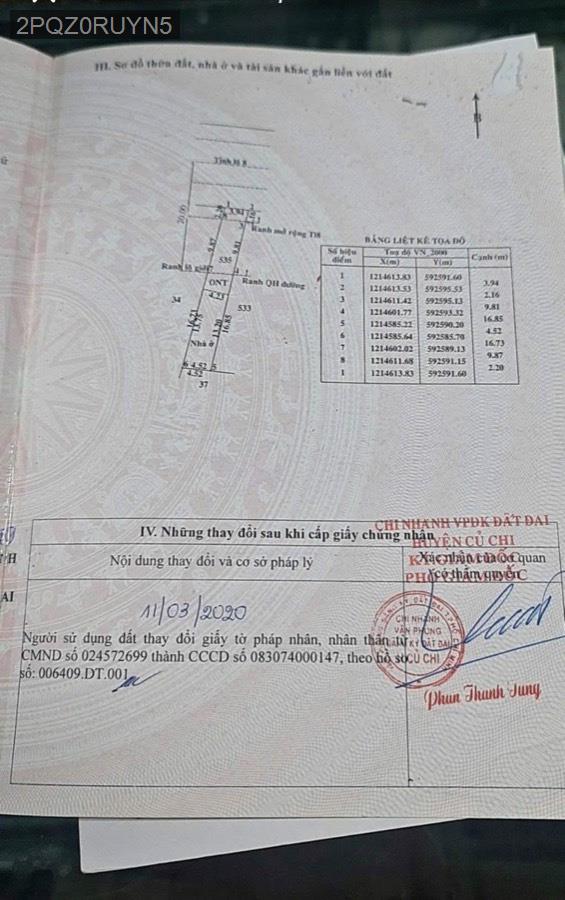 2PQZ0RUYN5
III. Sơ đồ thửa đất, nhà ở và tài sản khác gắn liền với đất
B
Tỉnh lộ 8
20.00
3.94
Ranh mở rộng Tl8
9.87
9.81
535
Ranh lộ giới
Ranh QH đường
ONT
4.25
34
533
16.73
13.20
16.85
Nhà ở
6 4.52 5
4.52
37
BẢNG LIỆT KÊ TỌA ĐỘ
Số hiệu điểm Tọa độ VN_2000 Cạnh (m)
X(m) Y(m)
1 1214613.83 592591.60
3.94
2 1214613.53 592595.53
2.16
3 1214611.42 592595.13
9.81
4 1214601.77 592593.32
16.85
5 1214585.22 592590.20
4.52
6 1214585.64 592585.70
16.73
7 1214602.02 592589.13
9.87
8 1214611.68 592591.15
2.20
1 1214613.83 592591.60
IV. Những thay đổi sau khi cấp giấy chứng nhận
CHI NHÁNH VPĐK ĐẤT ĐAI
HUYỆN CỦ CHI
Nội dung thay đổi và cơ sở pháp lý
Xác nhận của cơ quan
có thẩm quyền
PHÓ GIÁM ĐỐC
11/03/2020
Người sử dụng đất thay đổi giấy tờ pháp nhân, nhân thân từ
CMND số 024572699 thành CCCD số 083074000147, theo hồ sơ
số: 006409.DT.001
CHI NHÁNH
VĂN PHÒNG
ĐẤT ĐAI
CỦ CHI
Phan Thanh Tung